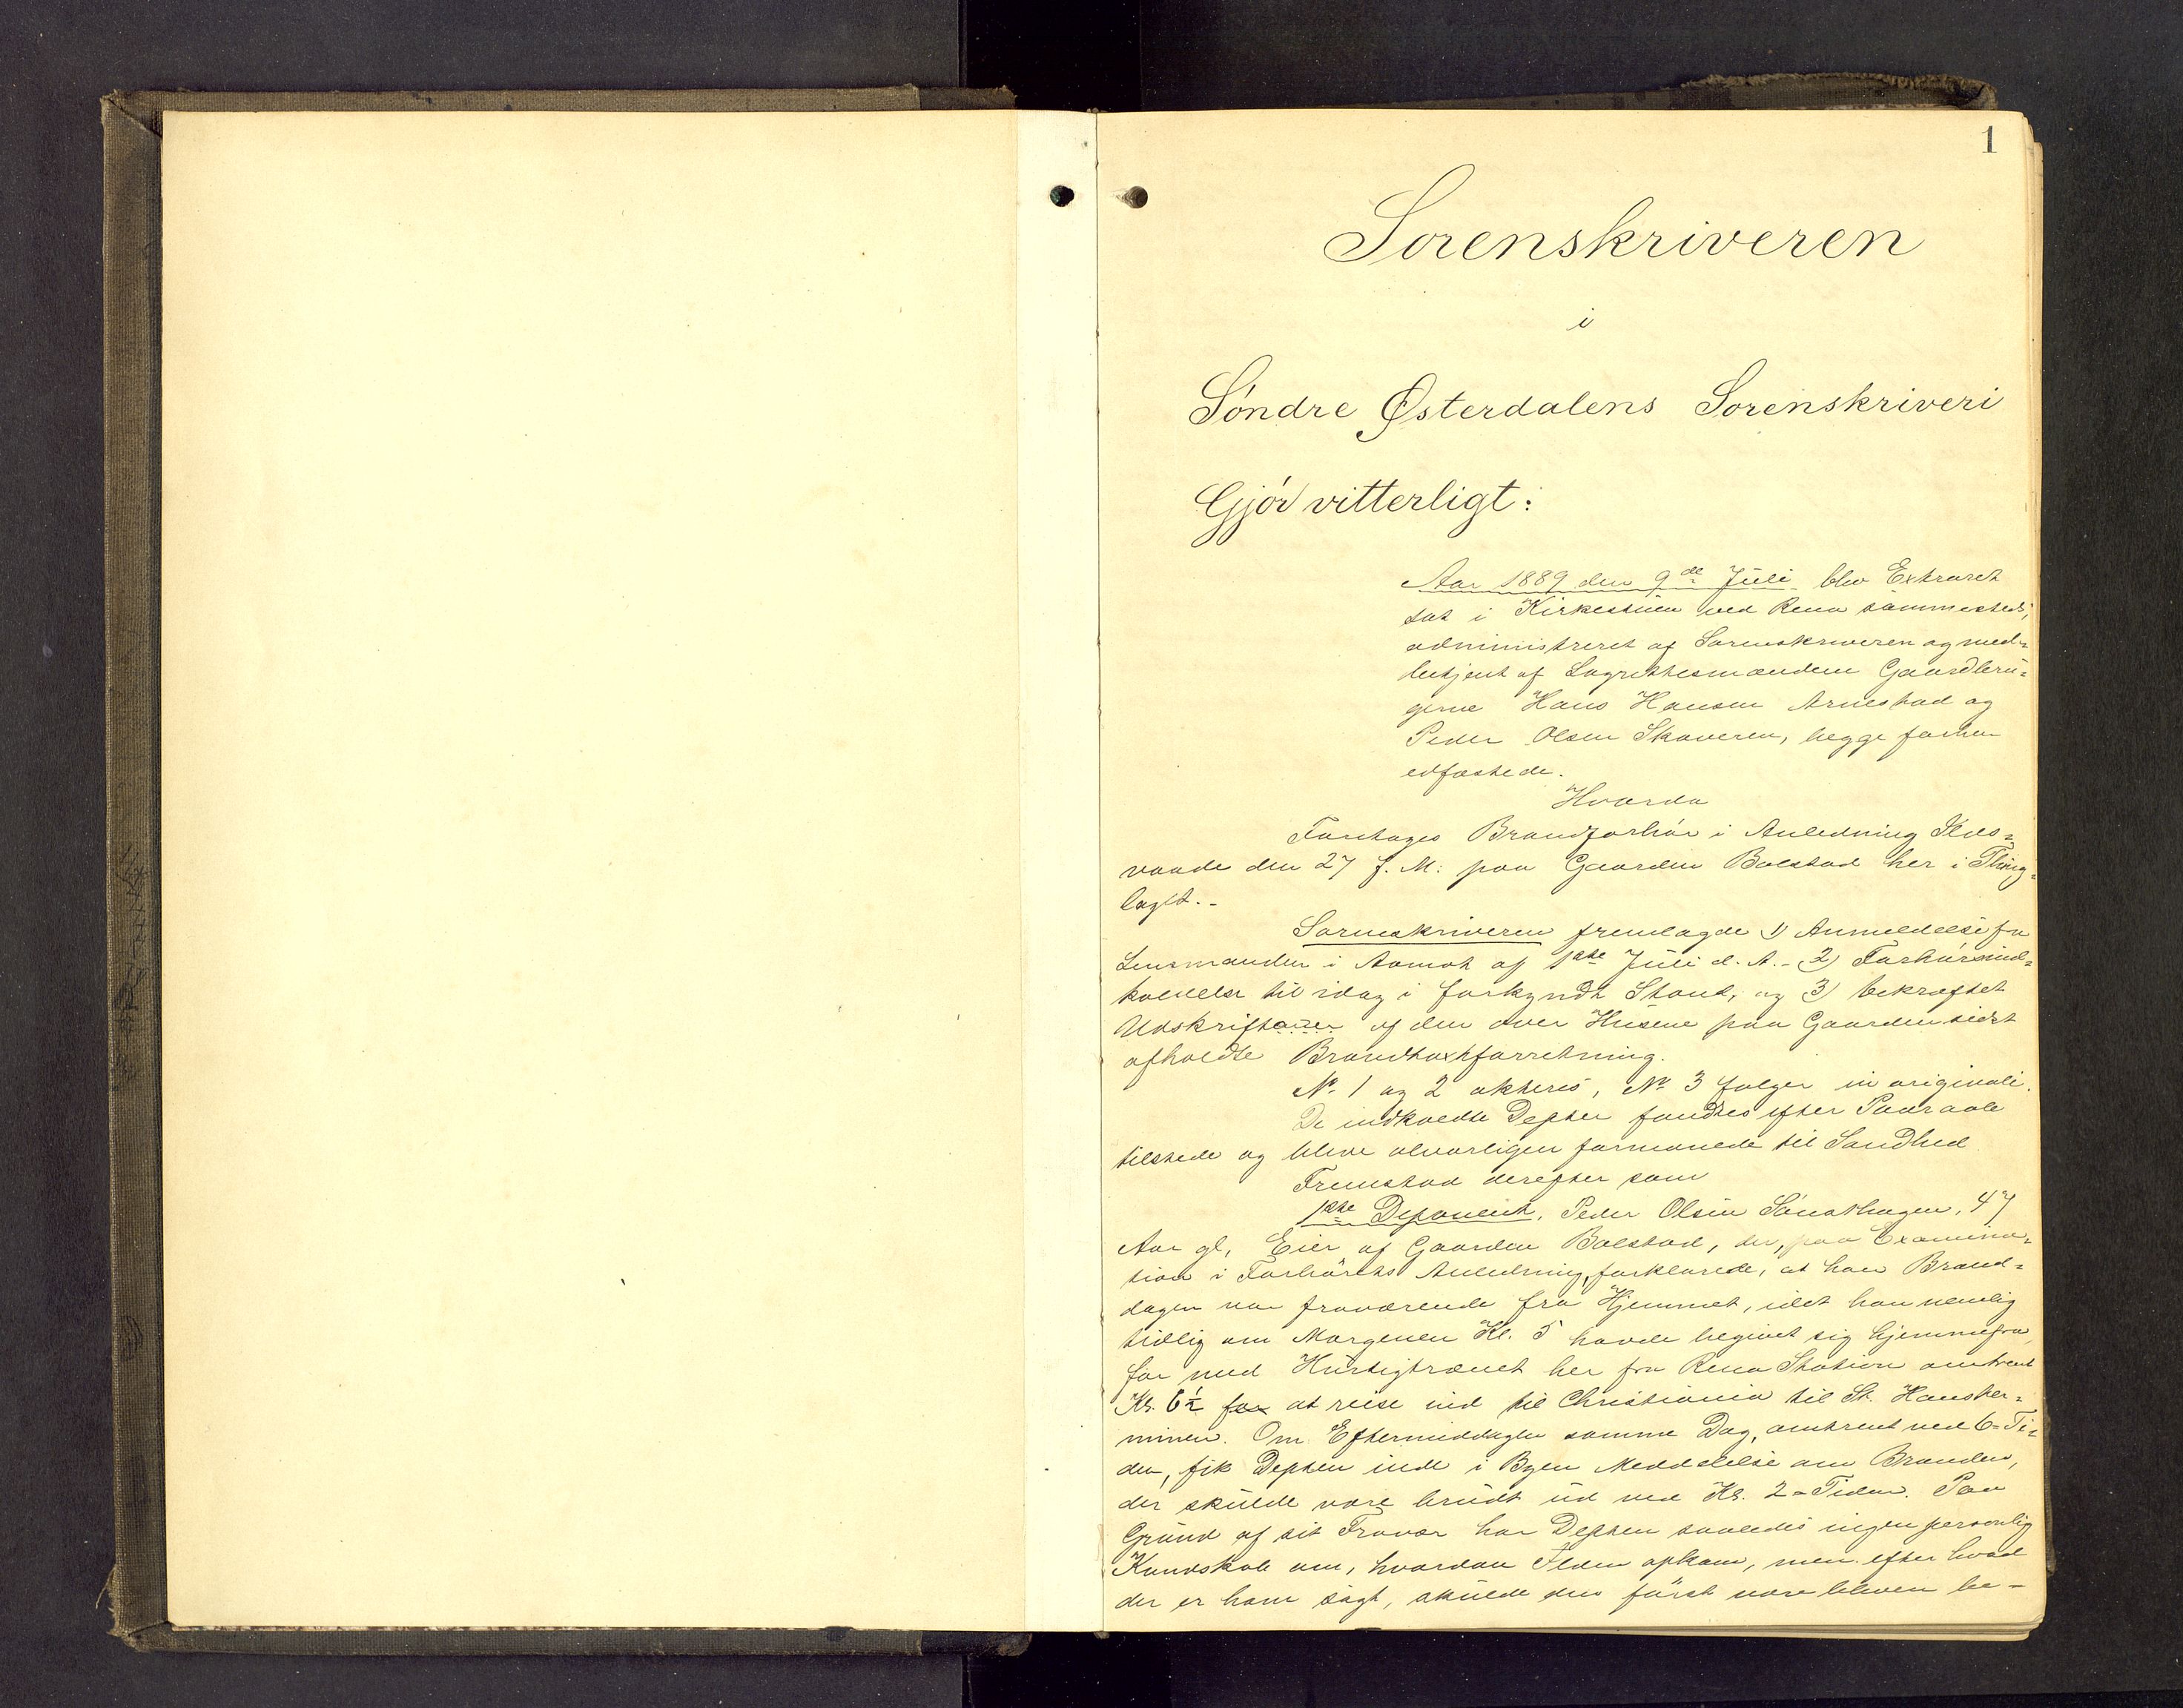 1
Sorenskriveren
i
Söndre Østerdalens Sorenskriveri
Gjör vitterligt:
Aar 1889 den 9de Juli blev Extraret
sat i Kirkestuen ved Rena sammesteds,
administreret af Sorenskriveren og med-
betjent af Lagrettesmændene Gaardbru-
gerne Hans Hansen Arnestad og
Peder Olsen Skaveren, begge forhen
edfæstede.
Hvorda
Foretoges Brandforhör i Anledning Ilds-
vaade den 27 f. M. paa Gaarden Bolstad her i Thing-
laget.-
Sorenskriveren fremlagde 1) Anmeldelse fra
Lensmanden i Aamot af 1ste Juli d. A. - 2) Forhörsind-
kaldelse til idag i forkyndt Stand, og 3) bekræftet
Udskrift af den over Husene paa Gaarden sidst
afholdte Brandtaxtforretning.
No 1 og 2 akteres, No 3 fölger in originali.
De indkaldte Depter fandtes efter Paaraab
tilstede og bleve alvorligen formanede til Sandhed
Fremstod derefter som
1ste Deponent, Peder Olsen Sönsthagen, 47
Aar gl, Eier af Gaarden Bolstad, der, paa Examina-
tion i Forhörets Anledning, forklarede, at han Brand-
dagen var fraværende fra Hjemmet, idet han nemlig
tidlig om Morgenen Kl. 5 havde begivet sig hjemmefra
for med Hurtigtrænet her fra Rena Station omtrent
Kl. 6½ for at reise ind til Christiania til St. Hanster-
minen. Om Eftermiddagen samme Dag, omtrent ved 6-Ti-
den, fik Depten inde i Byen Meddelelse om Branden,
der skulde være brudt ud ved Kl. 2-Tiden. Paa
Grund af sit Fravær har Depten saaledes ingen personlig
Kundskab om, hvordan Ilden opkom, men efter hvad
der er ham sagt, skulde den först være bleven be-